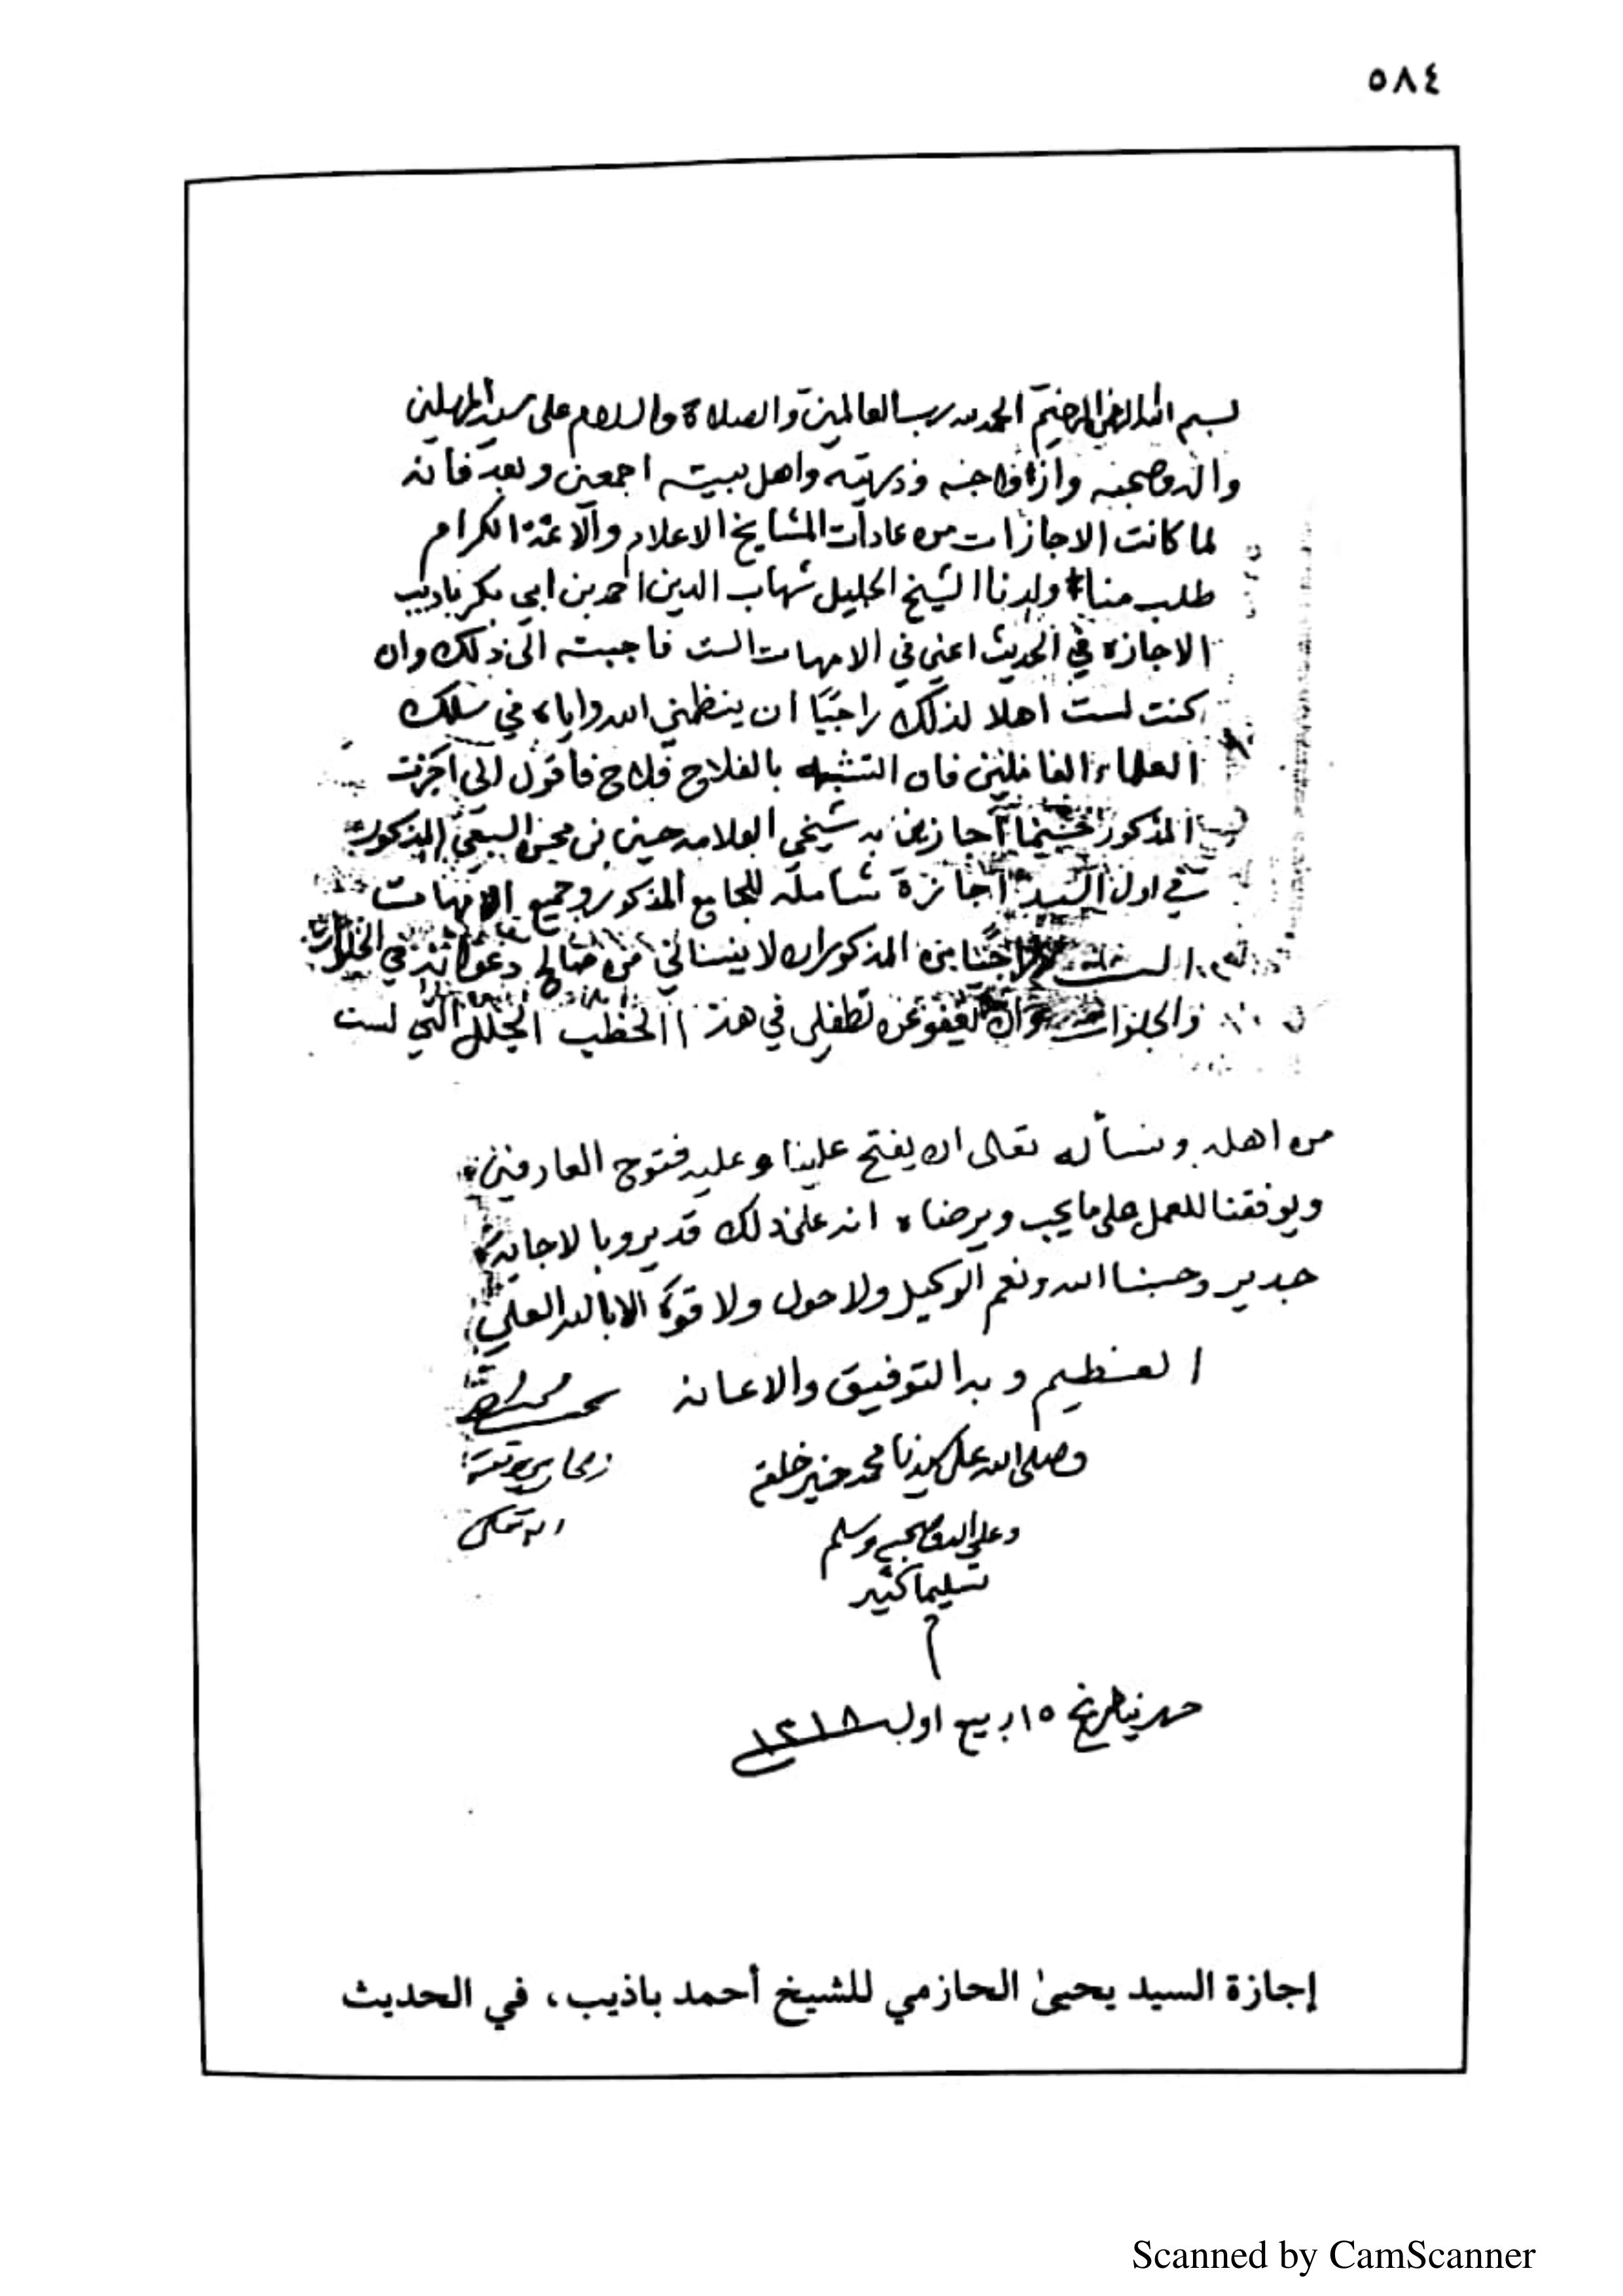 ٥٨٤
بسم الله الرحمن الرحيم الحمد لله رب العالمين والصلاة والسلام على سيد المرسلين
واله وصحبه وازواجه وذريته واهل بيته اجمعين وبعد فانه
لما كانت الاجازات من عادات المشايخ الاعلام والائمة الكرام
طلب منا ولدنا الشيخ الجليل شهاب الدين احمد بن ابي بكر باذيب
الاجازة في الحديث اعني في الامهات الست فاجبته الى ذلك وان
كنت لست اهلا لذلك راجيًا ان ينظمني الله واياه في سلك
العلماء العاملين فان التشبه بالفلاح فلاح فاقول اني اجزت
المذكور فيما اجازني به شيخي العلامه حسين بن محسن السبعي المذكور
في اول السيد اجازة شاملة للجامع المذكور وجميع الامهات
الست راجيًا من المذكور ان لا ينساني من صالح دعواته في الخلوات
والجلوات وان يعفو عن تطفلي في هذا الخطب الجلل التي لست
من اهله ونسأله تعالى ان يفتح علينا وعليه فتوح العارفين
ويوفقنا للعمل على ما يحب ويرضاه انه على ذلك قدير وبالاجابة
جدير وحسبنا الله ونعم الوكيل ولا حول ولا قوة الا بالله العلي
العظيم وبه التوفيق والاعانه
وصلى الله على سيدنا محمد خير خلقه
وعلى اله وصحبه وسلم
تسليما كثير
١٥ ربيع اول ١٣١٨
إجازة السيد يحيىٰ الحازمي للشيخ أحمد باذيب، في الحديث
Scanned by CamScanner